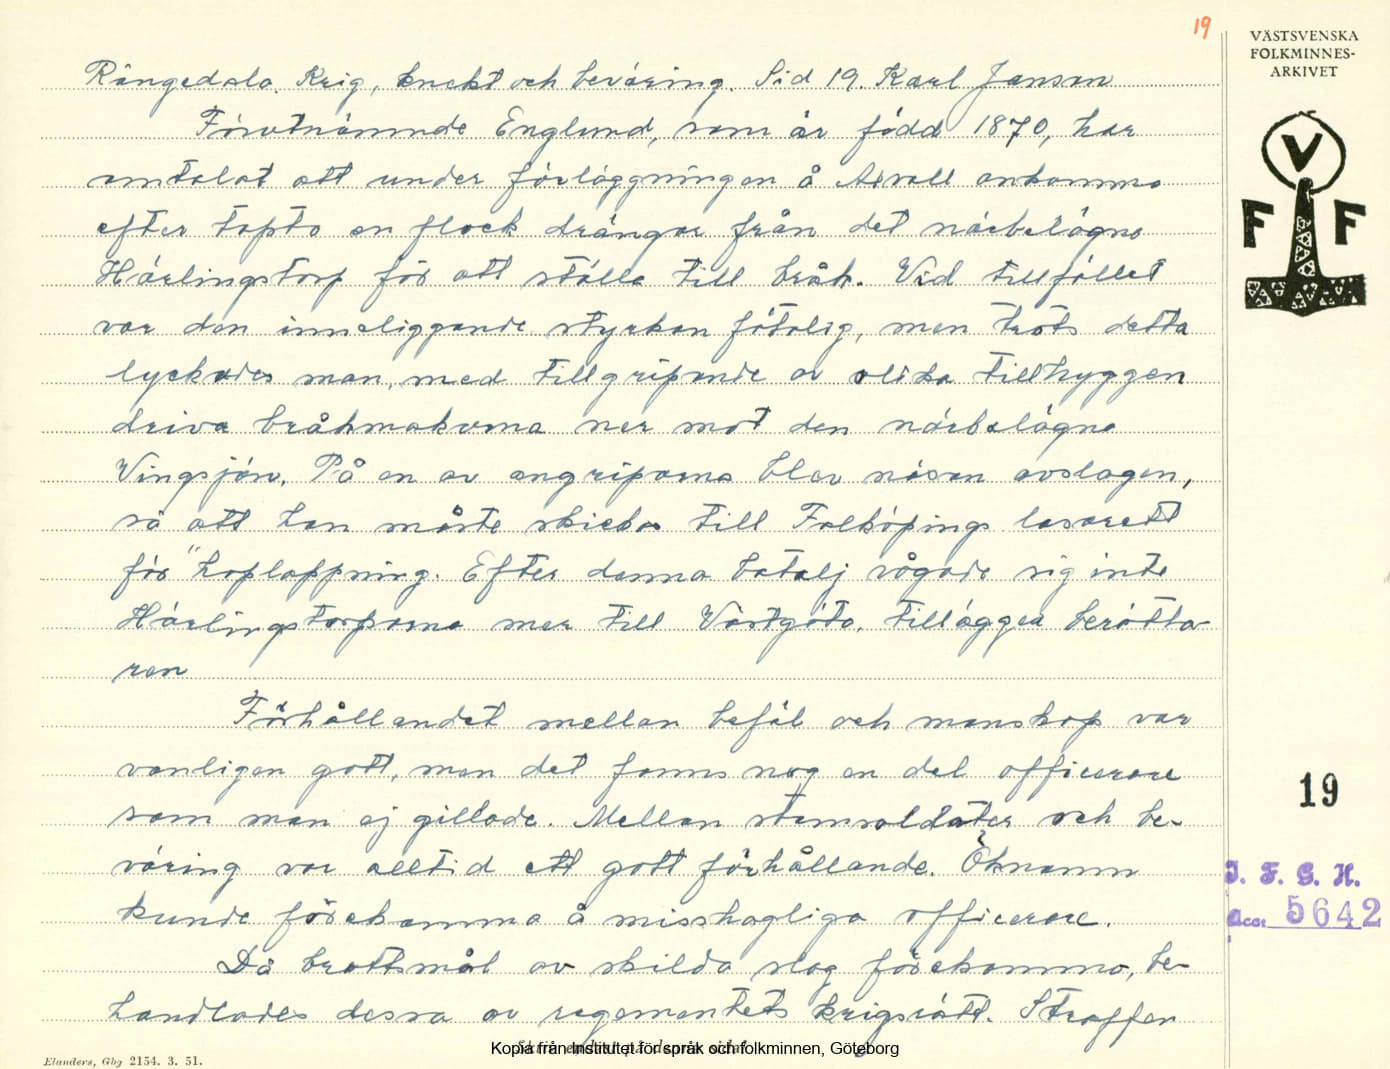 19
VÄSTSVENSKA
FOLKMINNES-
ARKIVET
V
F F
Rångedala. Krig, knekt och beväring. Sid 19. Karl Janson
Förutnämnde Englund, som är född 1870, har
omtalat att under förläggningen å Axvall ankommo
efter tapto en flock drängar från det närbelägna
Härlingstorp för att ställa till bråk. Vid tillfället
var den inneliggande styrkan fåtalig, men trots detta
lyckades man, med tillgripande av olika tillhyggen
driva bråkmakarna ner mot den närbelägna
Vingsjön. På en av angriparna blev näsan avslagen,
så att han måste skickas till Falköpings lasarett
för "hoplappning. Efter denna batalj vågade sig inte
Härlingstorparna mer till Västgöta, tillägger berätta-
ren
Förhållandet mellan befäl och manskap var
vanligen gott, men det fanns nog en del officerare
som man ej gillade. Mellan stamsoldater och be-
väring var alltid ett gott förhållande. Öknamn
kunde förekomma å misshagliga officerare.
Då brottsmål av skilda slag förekommo, be-
handlades dessa av regementets krigsrätt. Straffen
19
I. F. G. H.
Acc: 5642
Kopia från Institutet för språk och folkminnen, Göteborg
Elanders, Gbg 2154. 3. 51.